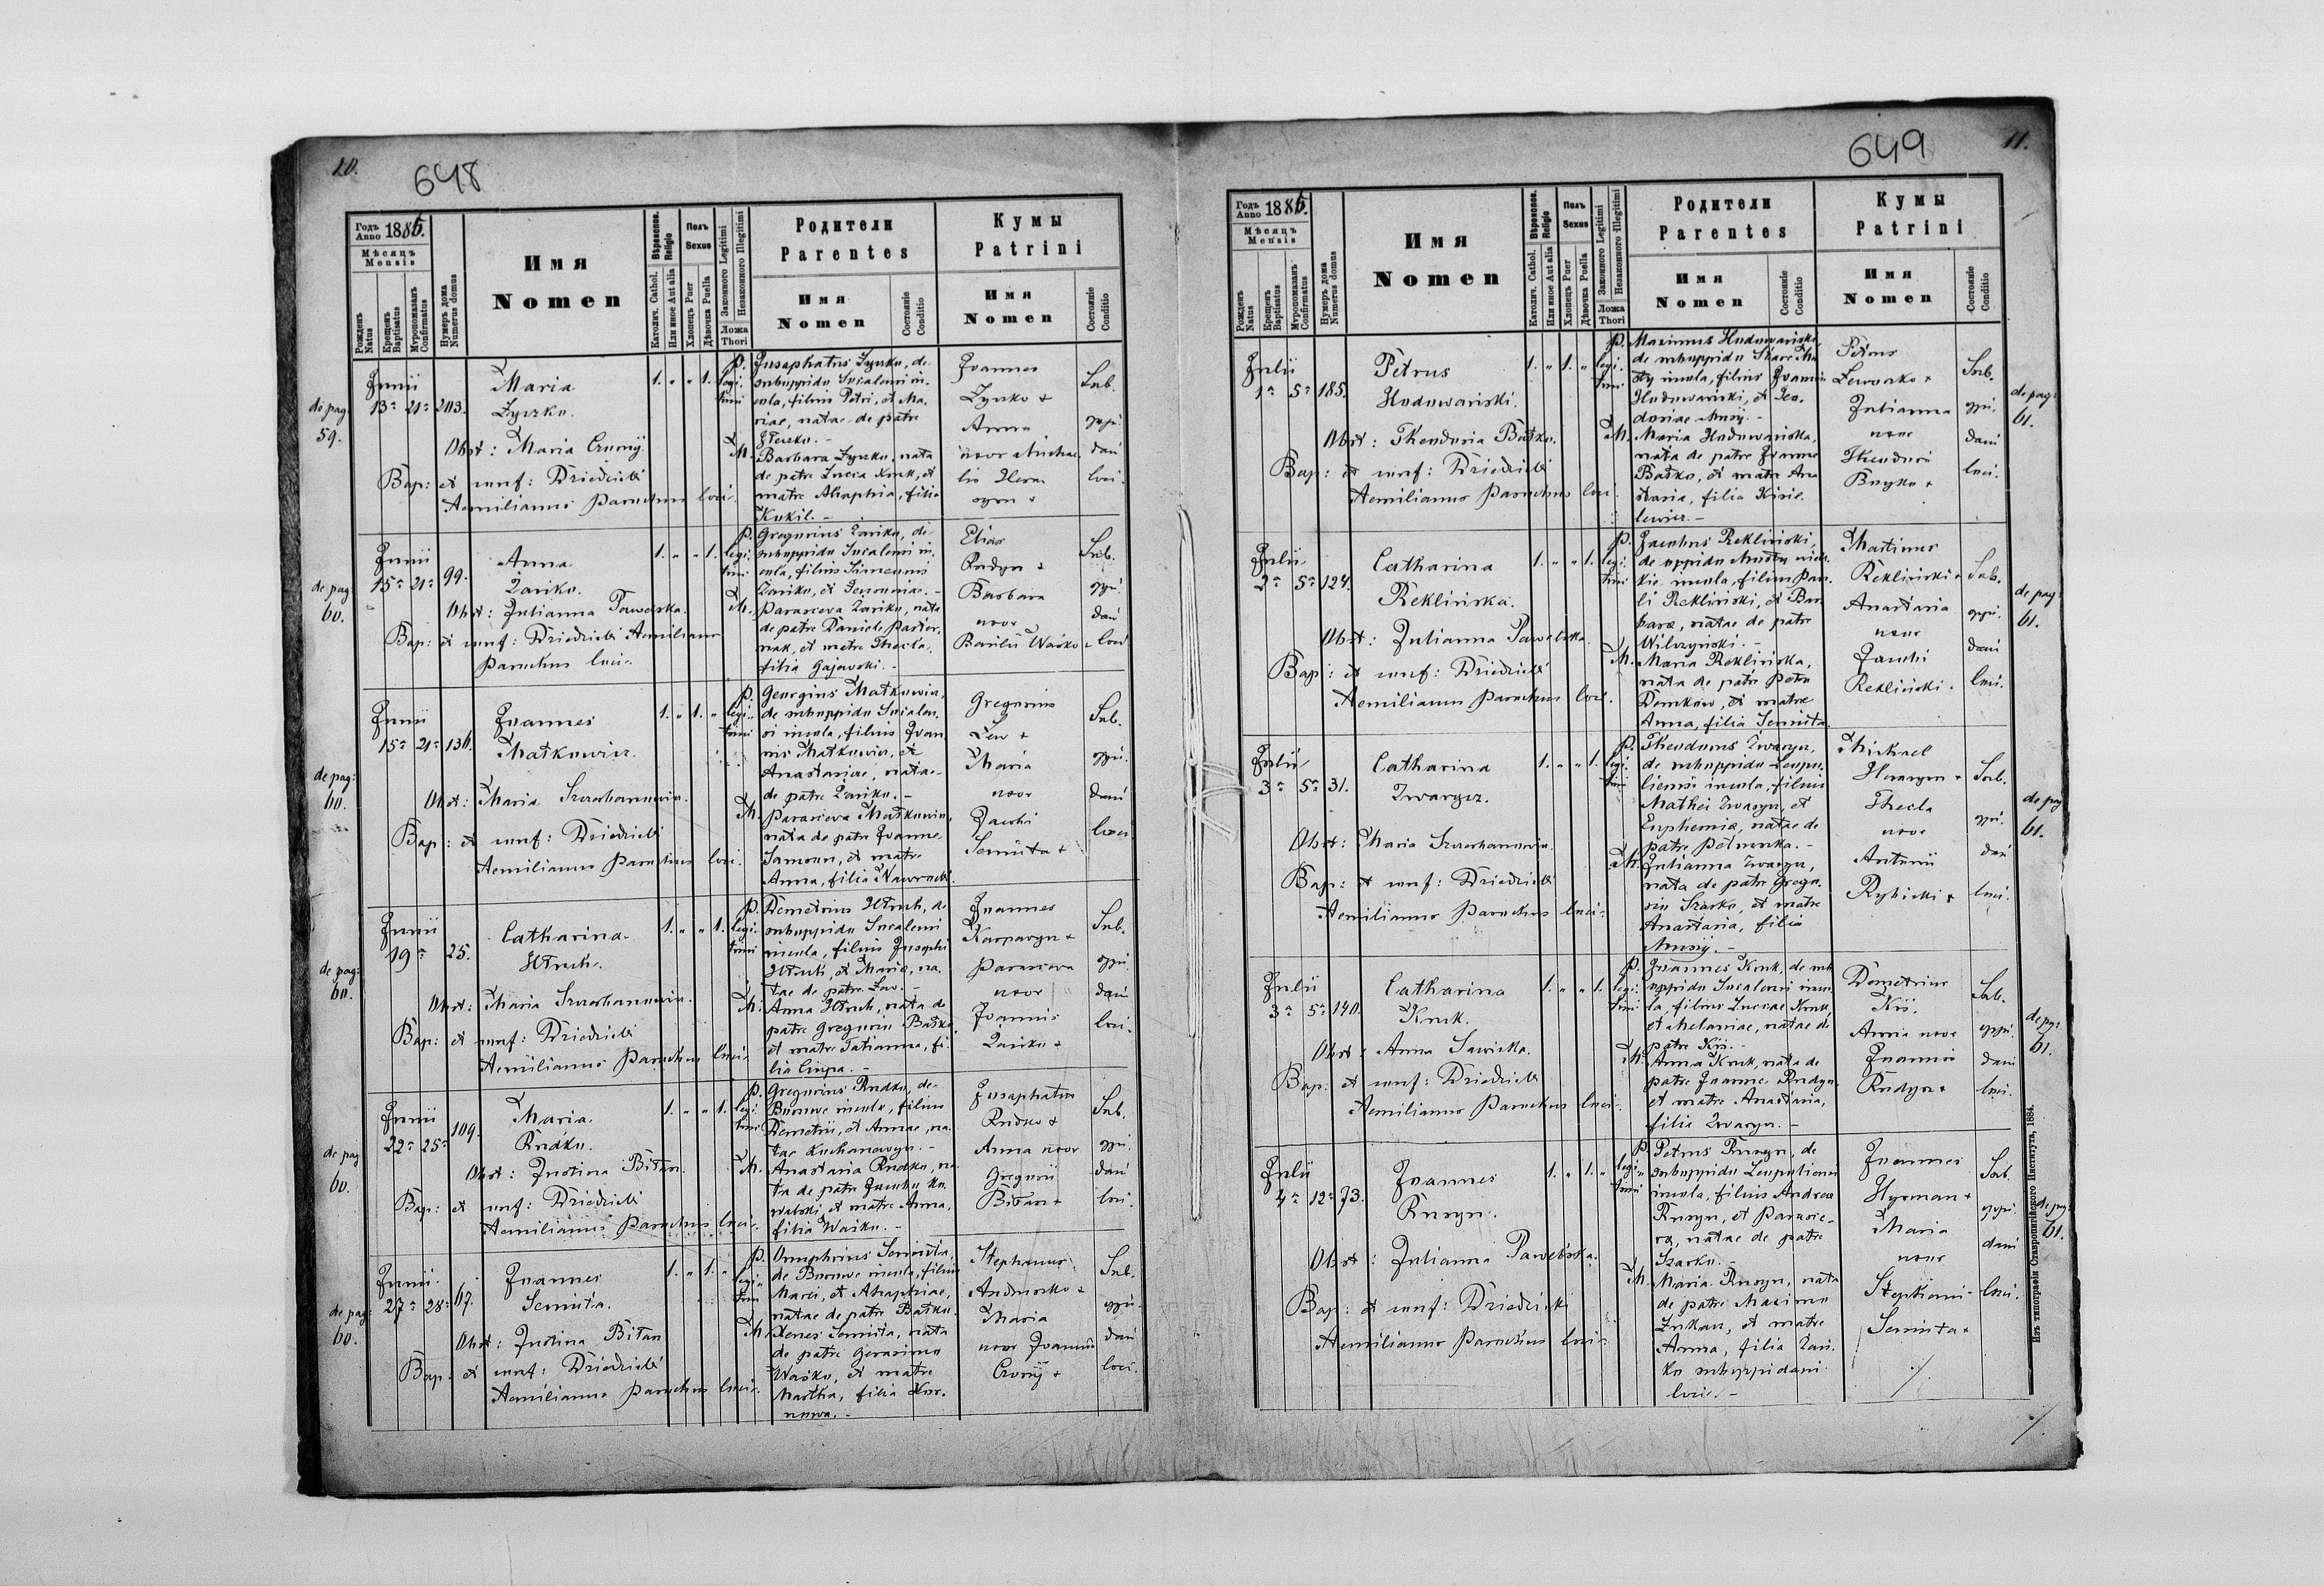 10.
648
Годъ
Anno 1886.
Мѣсяцъ
Mensis
Рожденъ
Natus
Крещенъ
Baptisatus
Мѵропомазанъ
Confirmatus
Нумеръ дома
Numerus domus
Имя
Nomen
Вѣроисповѣд.
Religio
Католич. Cathol.
Или иное Aut alia
Полъ
Sexus
Хлопецъ Puer
Дѣвочка Puella
Законного Legitimi
Незаконного Illegitimi
Ложа
Thori
Родители
Parentes
Имя
Nomen
Состояніе
Conditio
Кумы
Patrini
Имя
Nomen
Состояніе
Conditio
de pag.
59.
Junii
13a 21a 203.
Maria
Zyrko.
Obst: Maria Czornij.
Bap: et conf: Dziedzicki
Aemilianus Parochus loci.
1. " " 1. legi-
timi
P. Josaphatus Zyrko, de
suboppido in-
cola, filius Petri, et Ma-
riae, natae de patre
M. Barbara Zyrko, nata
de patre Luca Kruk, et
matre Ahaphia, filia
Kukil. -
Joannes
Zyrko +
Anna
uxor Michae-
lis
Sub-
oppi-
dani
loci.
de pag
60.
Junii
15a 21a 99.
Anna
Zariko.
Obst: Julianna Pawelska.
Bap: et conf: Dziedzicki Aemilianus
Parochus loci.
1. " " 1. legi-
timi
P. Gregorius Zariko, de
suboppido in-
cola, filius Simeonis
Zariko, et
M. Parasceva Zariko, nata
de patre Daniele Paster-
nak, et matre Thecla,
filia Gajowski. -
Elias
Rudyn +
Barbara
uxor
Basilii Waśko +
Sub-
oppi-
dani
loci
de pag:
60.
Junii
15a 21a 136.
Joannes
Matkowicz.
Obst: Maria
Bap: et conf: Dziedzicki
Aemilianus Parochus loci.
1. " 1. " legi-
timi
P. Georgius Matkowicz,
de suboppido
incola, filius Joan-
nis Matkowicz, et
Anastasiae, natae
de patre Zariko. -
M. Parasceva Matkowicz,
nata de patre Joanne
et matre
Anna, filia
Gregorius
Lew +
Maria
uxor
Jacobi
Semuta +
Sub-
oppi-
dani
loci
de pag:
60.
Junii
19a 25.
Catharina
Obst: Maria
Bap: et conf: Dziedzicki
Aemilianus Parochus loci.
1. " " 1. legi-
timi
P. Demetrius de
suboppido
incola, filius Josephi
et Mariae, na-
tae de patre Lew. -
M. Anna nata de
patre Gregorio Baśko,
et matre Tatianna, fi-
lia
Joannes
Karpawyn +
Parasceva
uxor
Joannis
Zariko +
Sub-
oppi-
dani
loci.
de pag
60.
Junii
22a 25a 109.
Maria
Rudko.
Obst: Justina Bitan.
Bap: et conf: Dziedzicki
Aemilianus Parochus loci.
1. " " 1. legi-
timi
P. Gregorius Rudko, de
incola, filius
Demetrii, et Annae, na-
tae
M. Anastasia Rudko, na-
ta de patre Jacobo Ko-
walski, et matre Anna,
filia Waśko. -
Josaphatus
Rudko +
Anna uxor
Gregorii
Bitan +
Sub-
oppi-
dani
loci.
de pag:
60.
Junii
27a 28a 67.
Joannes
Semuta.
Obst: Justina Bitan
Bap: et conf: Dziedzicki
Aemilianus Parochus loci.
1. " 1. " legi-
timi
P. Onuphrius Semuta,
de incola, filius
Marci, et Ahaphiae,
natae de patre Baśko.
M. Xenia Semuta, nata
de patre Gerasimo
Waśko, et matre
Martha, filia
Stephanus
Andrusko +
Maria
uxor Joannis
Czornij +
Sub-
oppi-
dani
loci.
649
11.
Годъ
Anno 1886.
Мѣсяцъ
Mensis
Рожденъ
Natus
Крещенъ
Baptisatus
Мѵропомазанъ
Confirmatus
Нумеръ дома
Numerus domus
Имя
Nomen
Вѣроисповѣд.
Religio
Католич. Cathol.
Или иное Aut alia
Полъ
Sexus
Хлопецъ Puer
Дѣвочка Puella
Законного Legitimi
Незаконного Illegitimi
Ложа
Thori
Родители
Parentes
Имя
Nomen
Состояніе
Conditio
Кумы
Patrini
Имя
Nomen
Состояніе
Conditio
Julii
1a 5a 185.
Petrus
Hodowański.
Obst: Theodosia Baśko.
Bap: et conf: Dziedzicki
Aemilianus Parochus loci.
1. " 1. " legi-
timi
P. Maximus Hodowański,
de suboppido Stare Mia-
sty incola, filius Joannis
Hodowański, et Teo-
dosiae
M. Maria Hodowańska,
nata de patre Joanne
Baśko, et matre Ana-
stasia, filia
Petrus
Julianna
uxor
Theodori
Bojko +
Sub-
oppi-
dani
loci.
de pag:
61.
Julii
2a 5a 124.
Catharina
Reklińska.
Obst: Julianna Pawelska.
Bap: et conf: Dziedzicki
Aemilianus Parochus loci.
1. " " 1. legi-
timi
P. Jacobus Rekliński,
de oppido
incola, filius Pau-
li Rekliński, et Bar-
bara, natae de patre
Wilczyński. -
M. Maria Reklińska,
nata de patre Petro
Demków, et matre
Anna, filia Semuta.
Martinus
Rekliński +
Anastasia
uxor
Jacobi
Rekliński.
Sub-
oppi-
dani
loci.
de pag:
61.
Julii
3a 5a 31.
Catharina
Zwarycz.
Obst: Maria
Bap: et conf: Dziedzicki
Aemilianus Parochus loci.
1. " " 1. legi-
timi
P. Theodorus Zwarycz,
de suboppido Leopo-
liensi incola, filius
Mathei Zwarycz, et
Euphemiae, natae de
patre
M. Julianna Zwarycz,
nata de patre Grego-
rio Szarko, et matre
Anastasia, filia
Michael
Thecla
uxor
Antonii
Rybicki +
Sub-
oppi-
dani
loci.
de pag
61.
Julii
3a 5a 140.
Catharina
Kruk.
Obst: Anna Sawicka.
Bap: et conf: Dziedzicki
Aemilianus Parochus loci.
1. " " 1. legi-
timi
P. Joannes Kruk, de sub-
oppido inco-
la, filius Lucae Kruk,
et Melaniae, natae de
patre Kis. -
M. Anna Kruk, nata de
patre Joanne Rudyn,
et matre Anastasia,
filia Zwarycz. -
Demetrius
Kis.
Anna uxor
Joannis
Rudyn +
Sub-
oppi-
dani
loci.
de pag:
61.
Julii
4a 12a 73.
Joannes
Rusyn.
Obst: Julianna Pawelska.
Bap: et conf: Dziedzicki
Aemilianus Parochus loci.
1. " 1. " legi-
timi
P. Petrus Rusyn, de
suboppido
incola, filius Andreae
Rusyn, et Parasce-
va, natae de patre
Szarko. -
M. Maria Rusyn, nata
de patre Maximo
et matre
Anna, filia Zari-
ko suboppidani
loci. -
Joannes
Hyrman +
Maria
uxor
Stephani
Semuta +
Sub-
oppi-
dani
loci.
de pag:
61.
Изъ типографіи Ставропигійского Института, 1884.